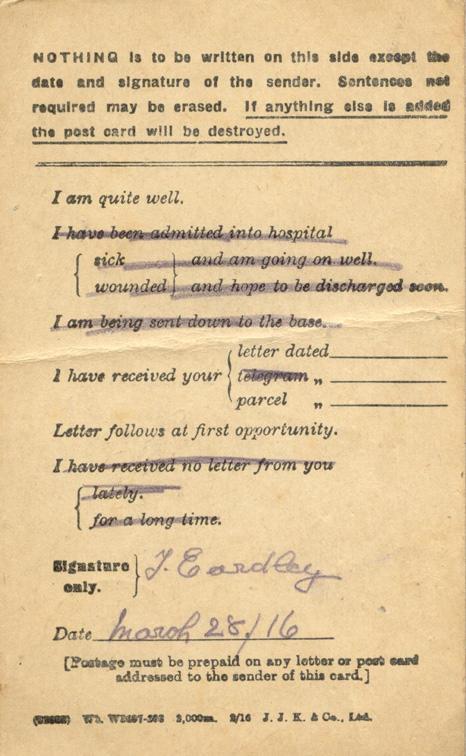 NOTHING is to be written on this side except the
date and signature of the sender. Sentences not
required may be erased. If anything else is added
the post card will be destroyed.
I am quite well.
I have been admitted into hospital
sick and am going on well.
wounded and hope to be discharged soon.
I am being sent down to the base.
letter dated
I have received your telegram „
parcel „
Letter follows at first opportunity.
I have received no letter from you
lately.
for a long time.
Signature only. J. Eardley
Date March 28/16
[Postage must be prepaid on any letter or post card
addressed to the sender of this card.]
Wt. 3,000m. 2/16 J. J. K. & Co., Ltd.